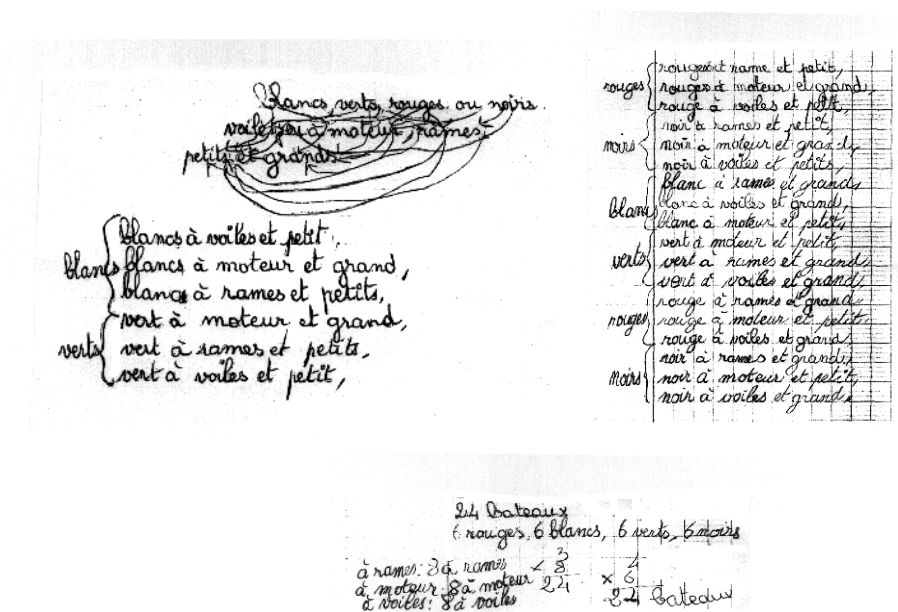 blancs, verts, rouges ou noirs.
voiles ou à moteur, rames,
petits et grands
blancs
blancs à voiles et petit,
blancs à moteur et grand,
blancs à rames et petits,
verts
vert à moteur et grand,
vert à rames et petits,
vert à voiles et petit,
rouges
rouges et rame et petit,
rouges à moteur et grand,
rouge à voiles et petit,
noirs
noir à rames et petit,
noir à moteur et grand,
noir à voiles et petits,
blancs
blanc à rames et grand,
blanc à voiles et grand,
blanc à moteur et petit,
verts
vert à moteur et petit,
vert à rames et grand,
vert à voiles et grand,
rouges
rouge à rames et grand
rouge à moteur et petit,
rouge à voiles et grand
noirs
noir à rames et grand,
noir à moteur et petit,
noir à voiles et grand.
24 Bateaux
6 rouges, 6 blancs, 6 verts, 6 noirs
à rames: 8 à rames
à moteur: 8 à moteur
à voiles: 8 à voiles
3
× 8
24
4
× 6
24 Bateaux